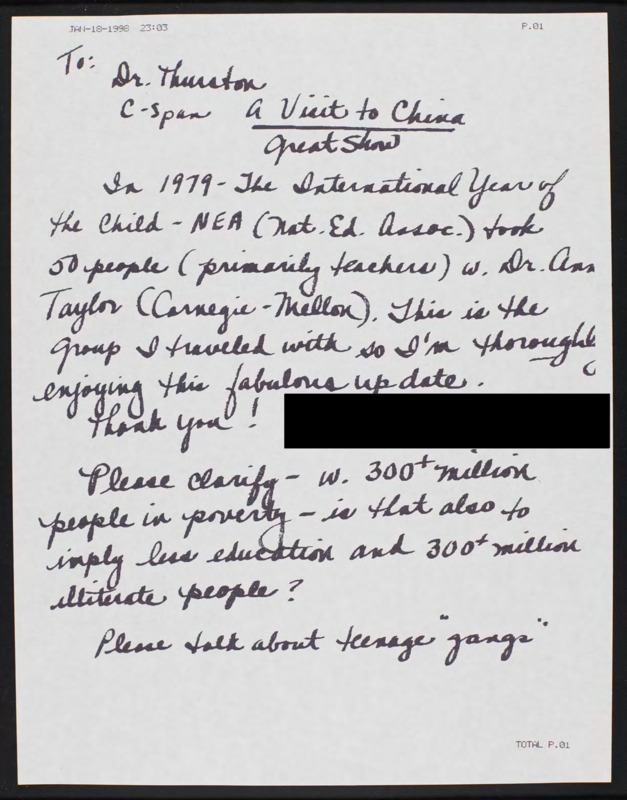 JAN-18-1998 23:03 P.01
To:
Dr. Thurston
C-Span A Visit to China
Great Show
In 1979 - The International Year of
the Child - NEA (Nat. Ed. Assoc.) took
50 people (primarily teachers) w. Dr. Ann
Taylor (Carnegie-Mellon). This is the
group I traveled with so I'm thoroughly
enjoying this fabulous update.
Thank you!
Please clarify - w. 300+ million
people in poverty - is that also to
imply less education and 300+ million
illiterate people?
Please talk about teenage "gangs"
TOTAL P.01